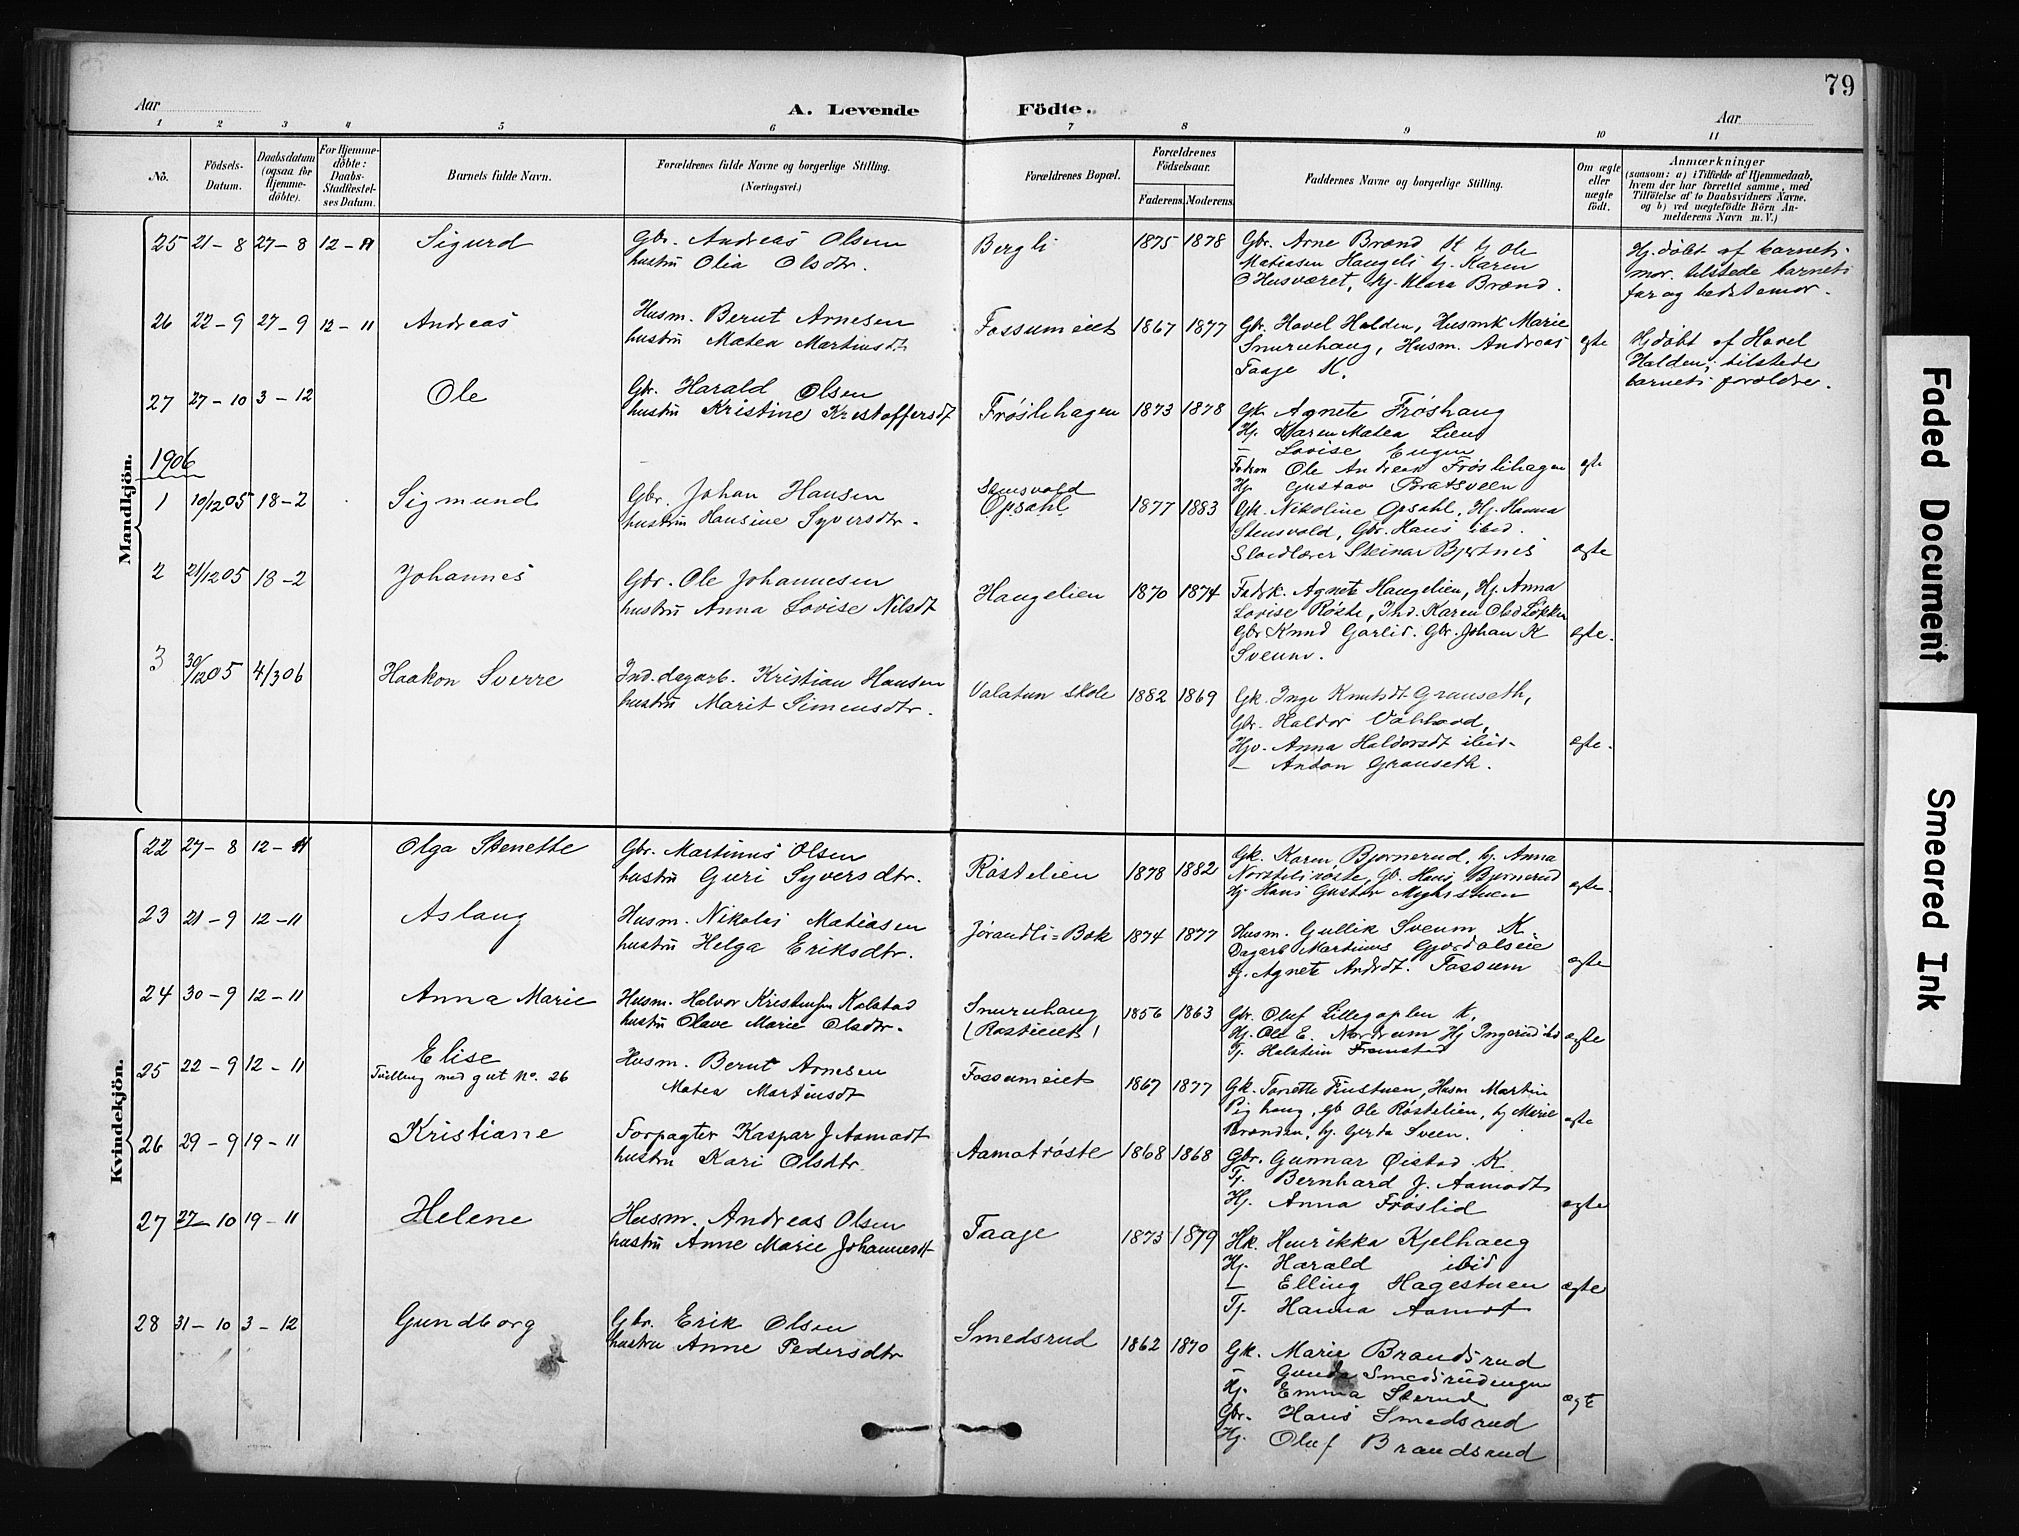 79
Aar
A. Levende Födte.
Aar
1 2 3 4 5 6 7 8 9 10 11
No.
Födsels-Datum.
Daabsdatum (ogsaa for Hjemmedöbte).
For Hjemmedöbte: Daabs-Stadfæstelses Datum.
Barnets fulde Navn.
Forældrenes fulde Navne og borgerlige Stilling.
(Næringsvei.)
Forældrenes Bopæl.
Forældrenes Födselsaar.
Faderens. Moderens.
Faddernes Navne og borgerlige Stilling.
Om ægte eller uægte födt.
Anmærkninger
(saasom: a) i Tilfælde af Hjemmedaab,
hvem der har forrettet samme, med
Tilföielse af to Daabsvidners Navne.
og b) ved uægtefödte Börn An-
melderens Navn m. V.)
Mandkjön.
25 21-8 27-8 12-11 Sigurd
Gbr. Andreas Olsen
hustru Olia Olsdtr.
Bergli 1875 1878
Gbr. Arne Brænd K Hj Ole
Matiasen Haugeli hj. Karen
O Husværet, hj. Klara Brænd.
Hj. døbt af barnets
mor. tilstede barnets
far og bedstemor.
26 22-9 27-9 12-11 Andreas
Husm. Bernt Arnesen
hustru Matea Martinsdt.
Fossumeiet 1867 1877
Gbr. Hovel Halden, Husmk Marie
Snuruhaug, Husm. Andreas
Taaje K.
egte
Hj døbt af Hovel
Halden; tilstede
barnets forældre.
27 27-10 3-12 Ole
Gbr. Harald Olsen
hustru Kristine Kristoffersdt
Frøslihagen 1873 1878
Gk. Agnete Frøshaug
Hj. Karen Matea Lien
- Lovise Engen
Ole Andreas Frøslihagen
Hj Gustav Bratsveen
egte
1906
1 10/12 05 18-2 Sigmund
Gbr. Johan Hansen
hustru Hansine Syversdtr.
Stensvold
Opsahl 1877 1883
Gk. Nikoline Opsahl, Hj. Hanna
Stensvold, Gbr. Hans ibid.
Sløidlærer Steinar Bjertnes
egte
2 21/12 05 18-2 Johannes
Gbr. Ole Johannesen
hustru Anna Lovise Nilsdt
Haugelien 1870 1874
Føderk. Agnete Haugelien, Hj. Anna
Lovise Røste, Ind. Karen Olsd Løkken
Gbr Knud Garlid. Gbr. Johan K
Sveum.
egte.
3 30/12 05 4/3 06 Haakon Sverre
Ind. dagarb. Kristian Hansen
hustru Marit Simensdtr.
Valatun skole 1882 1869
Gk. Inge Knutsdt Granseth,
Gbr. Haldor
Hjv. Anna Haldorsdt ibid-
- Anton Granseth.
egte.
Kvindekjön.
22 27-8 12-11 Olga Stenette
Gbr. Martinus Olsen
hustru Guri Syversdtr.
Røstelien 1878 1882
Gk. Karen Bjørnerud, hj. Anna
Norstelirøste, Gb. Hans Bjørnerud
Hj Hans Gustav Myhrstuen
egte.
23 21-9 12-11 Aslaug
Husm. Nikolai Matiasen
hustru Helga Eriksdtr.
Jørandli=Bak 1874 1877
Husm. Gullik Sveum K
Dagarb Martinus Gjordalseie
Tj. Agnete Andrdt. Fossum
egte
24 30-9 12-11 Anna Marie
Husm. Halvor Kristensen Kolstad
hustru Olave Marie Olsdtr.
Snuruhaug
(Røstieiet) 1856 1863
Gbr. Oluf Lillegoplen K.
Hj. Ole E. Nordrum Hj Ingerid ibd
Tj. Halstein Framstad
egte
25 22-9 12-11 Elise
Tvilling med gut No. 26
Husm. Bernt Arnesen
Matea Martinsdt
Fossumeiet 1867 1877
Gk. Torette Finstuen, Husm Martin
Pighaug, gb Ole Røstelien, hj Marie
Brænden, hj. Gerda Sveen.
egte
26 29-9 19-11 Kristiane
Forpagter Kaspar J Aamodt
hustru Kari Olsdtr.
Aamotrøste 1868 1868
Gbr. Gunnar Øistad K
Tj. Bernhard J. Aamodt
Hj. Anna Frøslid
egte
27 27-10 19-11 Helene
Husm. Andreas Olsen
hustru Anne Marie Johannesdt
Taaje 1873 1879
Hk. Henrikka Kjelhaug
Hj. Harald ibid
- Elling Hagestuen
Tj. Hanna Aamot
egte
28 31-10 3-12 Gundborg
Gbr. Erik Olsen
hustru Anne Pedersdtr
Smedsrud 1862 1870
Gk. Marie Brandsrud
- Gunda Smedsrudengen
Hj. Emma Sterud
Gbr. Hans Smedsrud
Hj. Oluf Brandsrud
egte
Faded Document
Smeared Ink